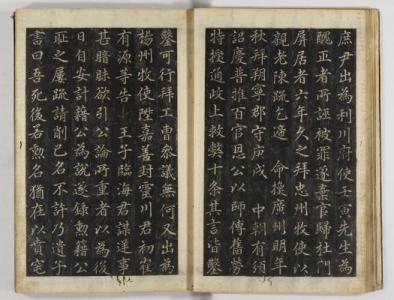 庶尹出為利川府使壬寅先生為
醜正者所誣被罪遂棄官歸杜門
屛居者六年久之拜忠州牧使以
親老陳疏乞遞 命換廣州明年
秋拜朔寧郡守庚戌 中朝有頒
詔慶普推百官恩公以師傅舊勞
特授通政上救弊十条其言皆鑿
鑿可行拜工曹參議無何又出為
楊州牧使陞嘉善封靈川君初崔
有源等告 王子臨海君謀逆事
甚暗昧欲引公論所重者以為後
日自安計籍公為說遂錄勲籍公
耻之屢疏請削已名不許乃遺子
書曰吾死後若勲名猶在以賁窀